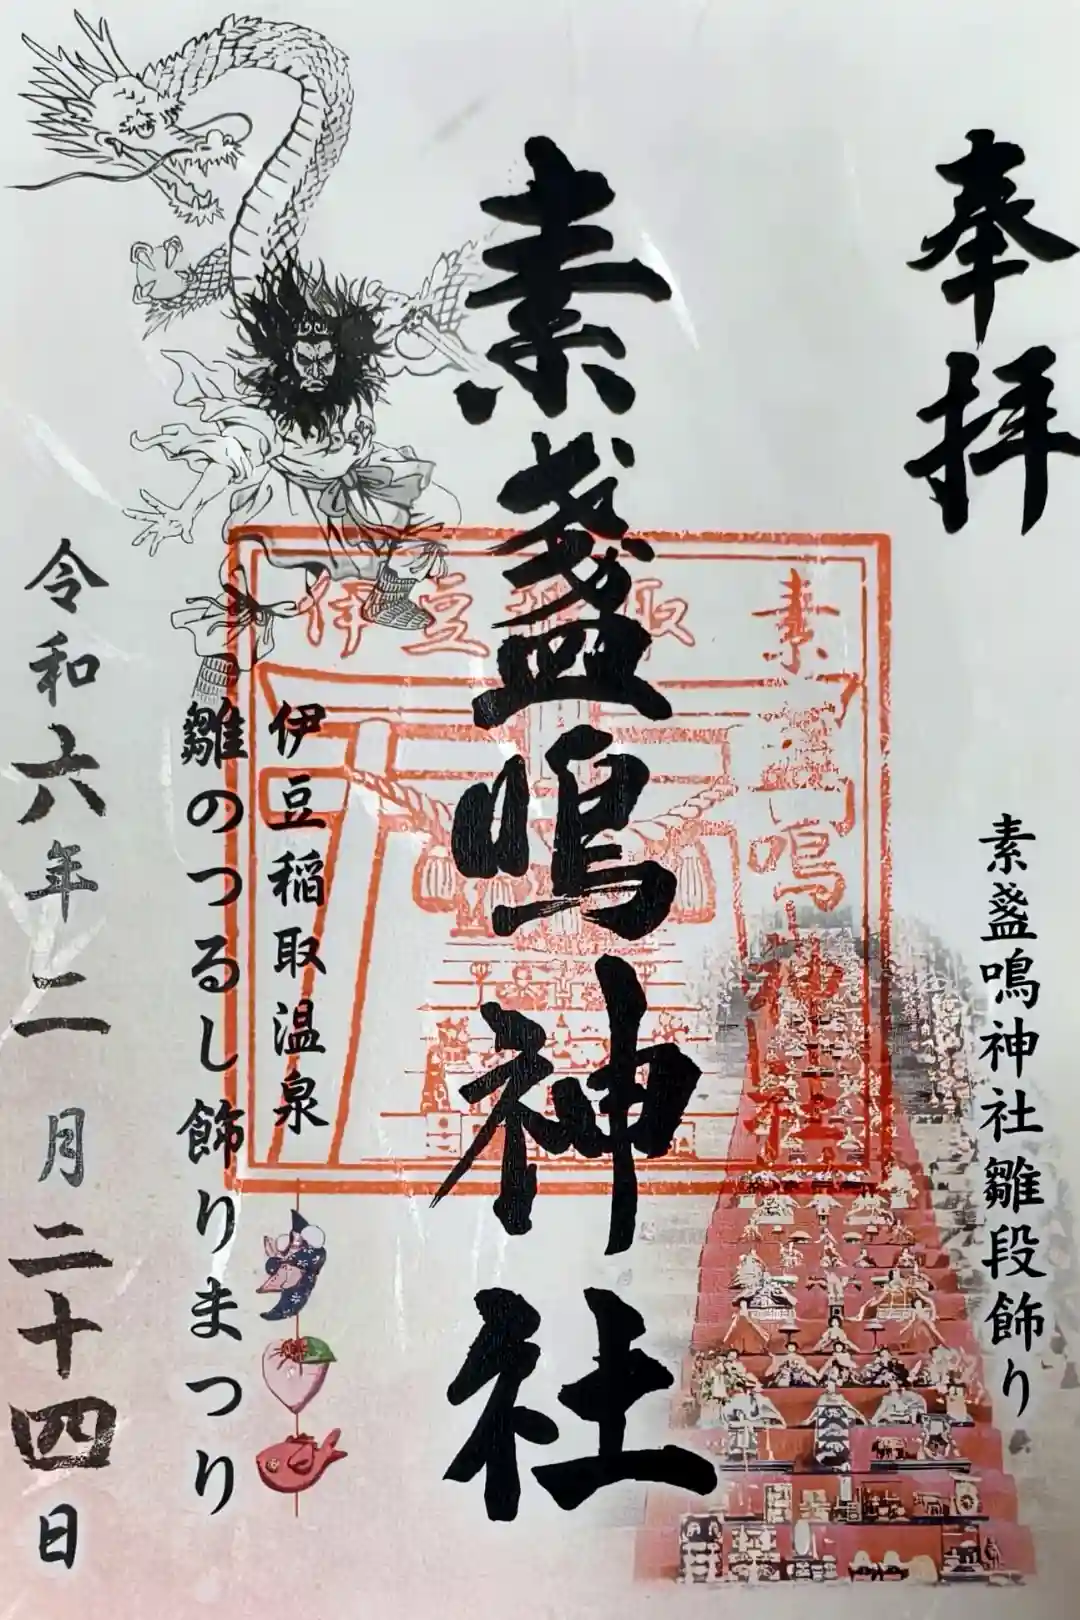 奉拝
素盞鳴神社雛段飾り
素盞鳴神社
伊豆稲取
素盞鳴神社
伊豆稲取温泉
雛のつるし飾りまつり
令和六年二月二十四日